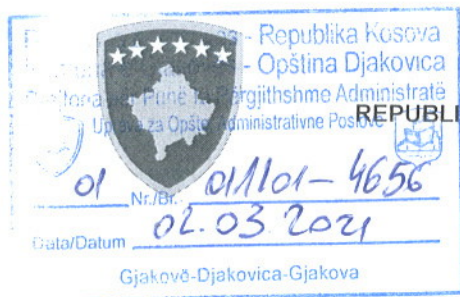 - Republika Kosova
- Opština Djakovica
Përgjithshme Administratë
Uprava za Opšte Administrativne Poslove
REPUBLI
01 Nr./Br. 01/101-4656
Data/Datum 02.03.2021
Gjakovë-Djakovica-Gjakova